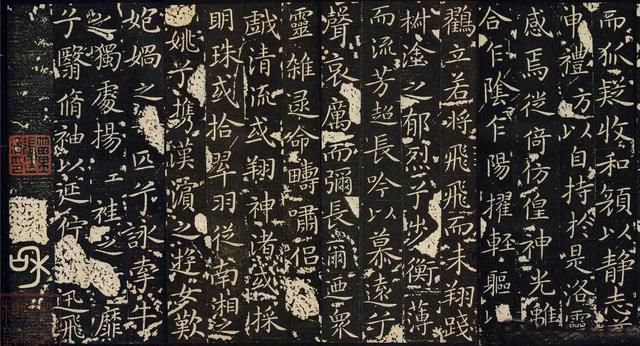 而狐疑收和顏以静志
申禮方以自持於是洛靈
感焉徙倚彷徨神光離
合乍陰乍陽擢輕軀以
鸖立若將飛飛而未翔踐
椒塗之郁烈兮步衡薄
而流芳超長吟以慕遠兮
聲哀厲而彌長爾迺衆
靈雜遝命疇嘯侶
戲清流或翔神渚或採
明珠或拾翠羽從南湘之
姚兮攜漢濱之遊女歎
妃媧之匹兮詠牽牛
之獨處揚袿之靡
兮翳脩袖以延佇迅飛